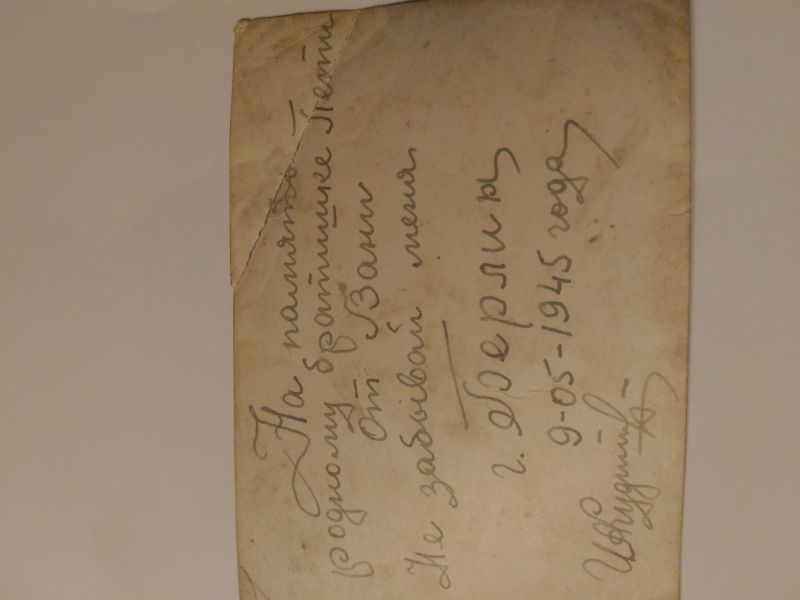 На память
родному братишке Пети
От Вани
Не забывай меня.
г. Берлин
9-05-1945 года